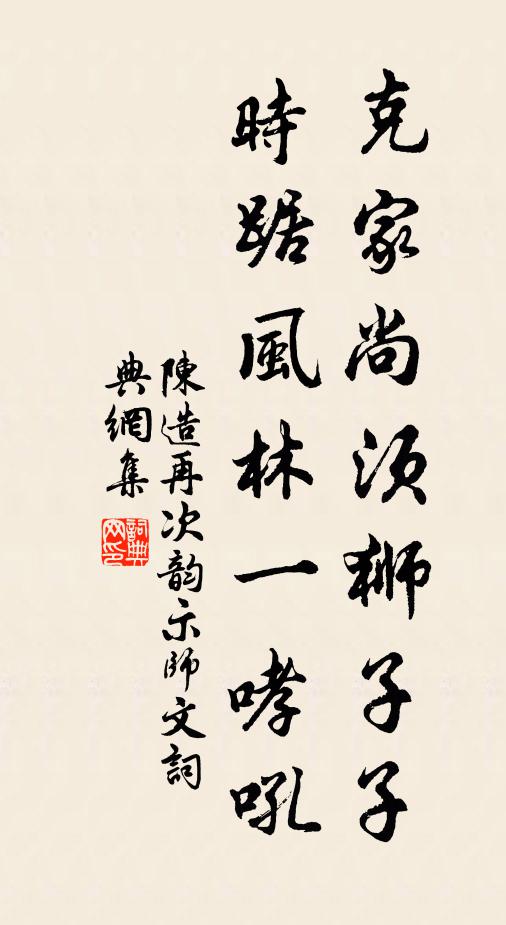 克家尚須狮子子
時踞風林一哮吼
陳造再次韵示師文詞
典網集
詞典网印